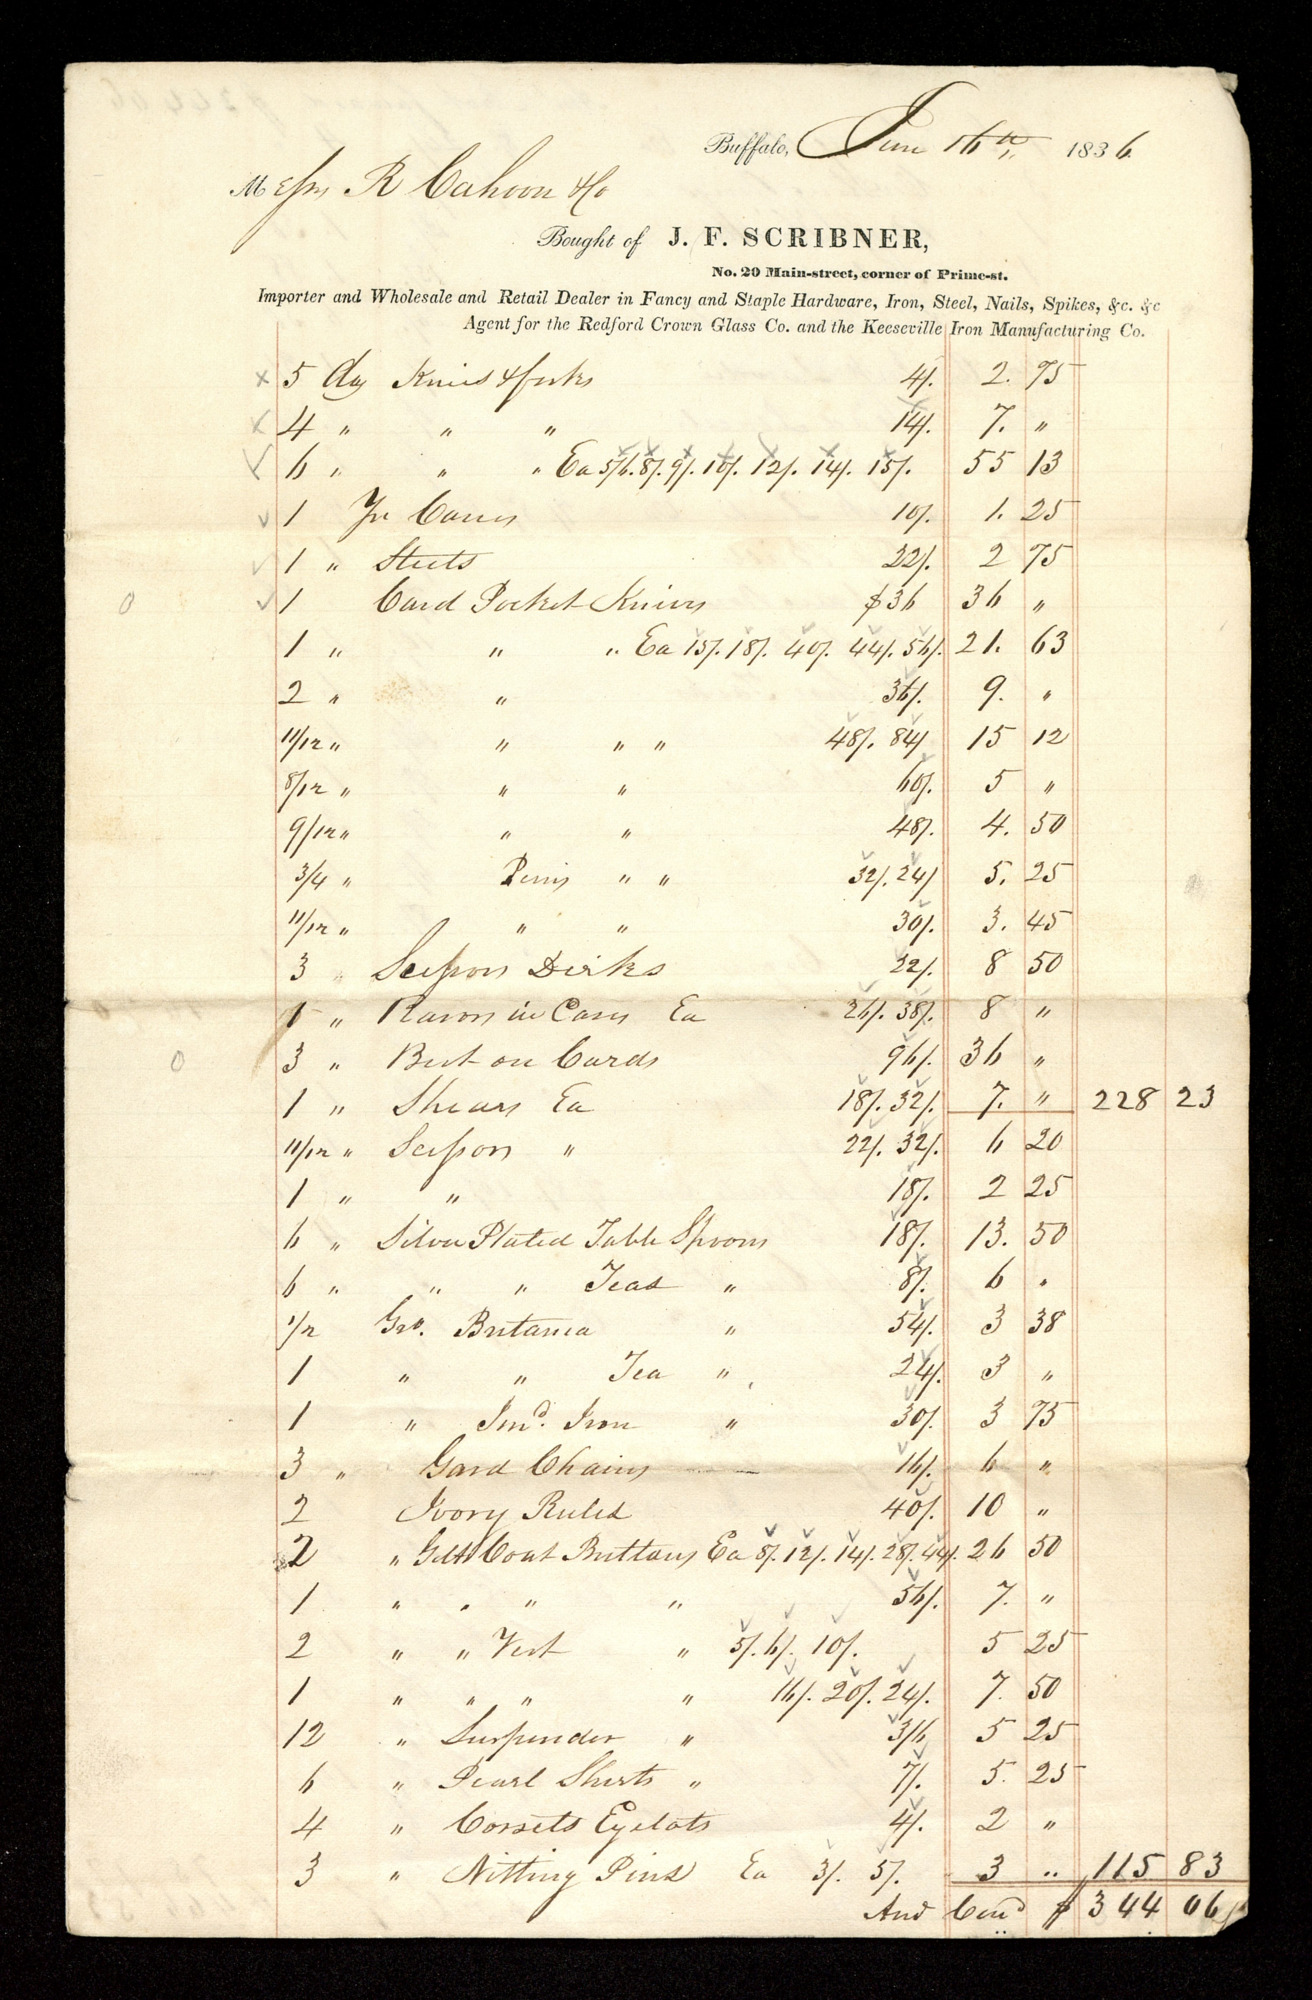 Buffalo, June 16th, 1836
Messrs R Cahoon & Co
Bought of J. F. SCRIBNER,
No. 20 Main-street, corner of Prime-st.
Importer and Wholesale and Retail Dealer in Fancy and Staple Hardware, Iron, Steel, Nails, Spikes, &c. &c
Agent for the Redford Crown Glass Co. and the Keeseville Iron Manufacturing Co.
5 Knives & forks 4/. 2. 75
4 " " " 14/. 7. "
6 " " " Ea 5/6. 8/. 9/. 10/. 12/. 14/. 15/. 55 13
1 10/. 1. 25
1 " Steels 22/. 2 75
1 Card Pocket Knives $36 36 "
1 " " " Ea 15/. 18/. 40/. 44/. 56/. 21. 63
2 " " 36/. 9. "
11/12 " " " " 48/. 84/ 15 12
8/12 " " " 60/. 5 "
9/12 " " " 48/. 4. 50
3/4 " Penns " " 32/. 24/ 5. 25
11/12 " " " 30/. 3. 45
3 " Scissors Dirks 22/. 8 50
1 " Razors in Cases Ea 26/. 38/. 8 "
3 " Best on Cards 96/. 36 "
1 " Shears Ea 18/. 32/. 7. " 228 23
11/12 " Scissors " 22/. 32/. 6 20
1 " " 18/. 2 25
6 " Silver Plated Table Spoons 18/. 13. 50
6 " " " Teas " 8/. 6 "
1/2 Gro. Britania " 54/. 3 38
1 " " Tea " 24/. 3 "
1 " Imd. Iron " 30/. 3 75
3 " Gard Chains 16/. 6 "
2 Ivory Rules 40/. 10 "
2 " Gilt Coat Buttons Ea 8/. 12/. 14/. 28/. 44/. 26 50
1 " " " " 56/. 7. "
2 " " Vest " 5/. 6/. 10/. 5 25
1 " " " " 16/. 20/. 24/. 7. 50
12 " Suspender " 3/6 5 25
6 " Pearl Shirts " 7/. 5. 25
4 " Corsets Eyelats 4/. 2 "
3 " Nitting Pins Ea 3/. 5/. 3 " 115 83
And $ 344 06